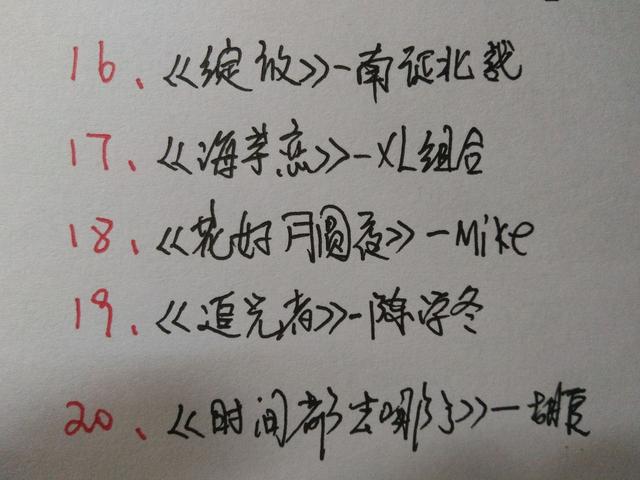 16、《绽放》-南征北战
17、《海芋恋》-XL组合
18、《花好月圆夜》-Mike
19、《追光者》-陈学冬
20、《时间都去哪了》-胡夏